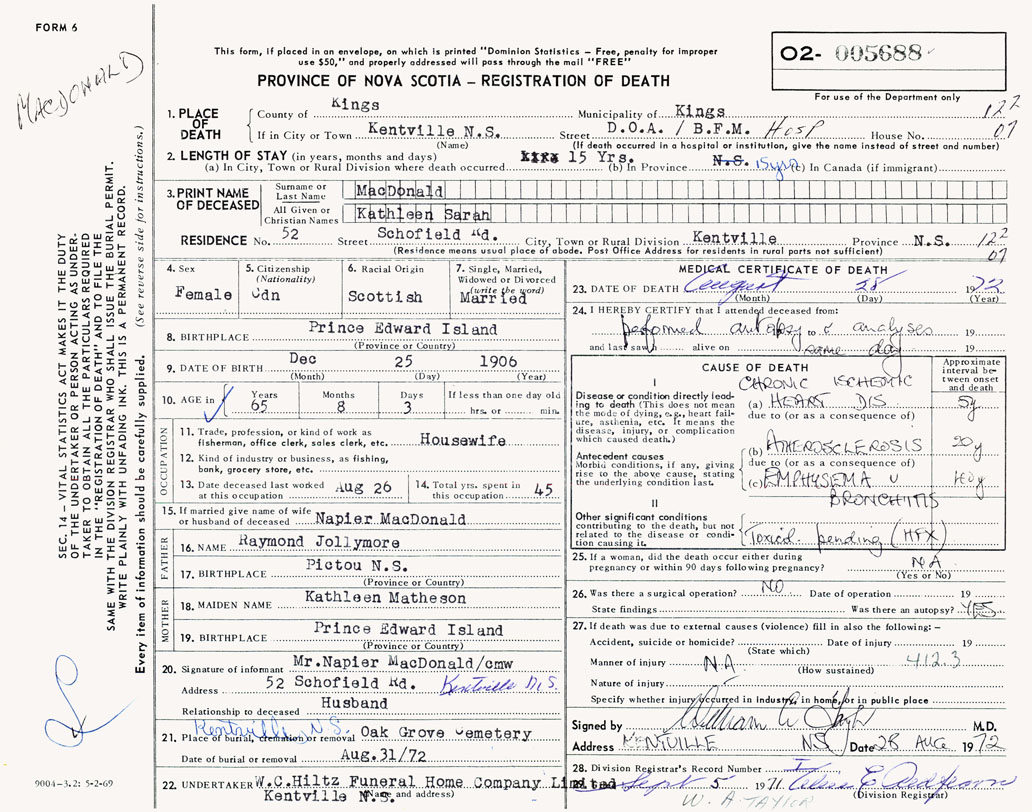 FORM 6
MACDONALD
This form, if placed in an envelope, on which is printed "Dominion Statistics – Free, penalty for improper
use $50," and properly addressed will pass through the mail "FREE"
PROVINCE OF NOVA SCOTIA – REGISTRATION OF DEATH
02- 005688
For use of the Department only
122
07
1. PLACE OF DEATH
County of Kings Municipality of Kings
If in City or Town Kentville N.S. Street D.O.A. / B.F.M. Hosp House No.
(Name) (If death occurred in a hospital or institution, give the name instead of street and number)
2. LENGTH OF STAY (in years, months and days) 15 Yrs. N.S. 15 yrs
(a) In City, Town or Rural Division where death occurred (b) In Province (c) In Canada (if immigrant)
3. PRINT NAME OF DECEASED
Surname or Last Name MacDonald
All Given or Christian Names Kathleen Sarah
RESIDENCE No. 52 Street Schofield Rd. City, Town or Rural Division Kentville Province N.S. 122
07
(Residence means usual place of abode. Post Office Address for residents in rural parts not sufficient)
4. Sex Female
5. Citizenship (Nationality) Cdn
6. Racial Origin Scottish
7. Single, Married, Widowed or Divorced (write the word) Married
8. BIRTHPLACE Prince Edward Island
(Province or Country)
9. DATE OF BIRTH Dec 25 1906
(Month) (Day) (Year)
10. AGE in Years 65 Months 8 Days 3 If less than one day old
hrs. or min.
OCCUPATION
11. Trade, profession, or kind of work as
fisherman, office clerk, sales clerk, etc. Housewife
12. Kind of industry or business, as fishing,
bank, grocery store, etc.
13. Date deceased last worked at this occupation Aug 26
14. Total yrs. spent in this occupation 45
15. If married give name of wife
or husband of deceased Napier MacDonald
FATHER
16. NAME Raymond Jollymore
17. BIRTHPLACE Pictou N.S.
(Province or Country)
MOTHER
18. MAIDEN NAME Kathleen Matheson
19. BIRTHPLACE Prince Edward Island
(Province or Country)
20. Signature of informant Mr.Napier MacDonald/cmw
Address 52 Schofield Rd. Kentville N.S.
Relationship to deceased Husband
Kentville, N.S.
21. Place of burial, cremation or removal Oak Grove Cemetery
Date of burial or removal Aug.31/72
22. UNDERTAKER W.C.Hiltz Funeral Home Company Limited
Kentville N.S.
(Name and address)
MEDICAL CERTIFICATE OF DEATH
23. DATE OF DEATH August 28 1972
(Month) (Day) (Year)
24. I HEREBY CERTIFY that I attended deceased from:
performed autopsy analyses 19
and last saw alive on same day 19
CAUSE OF DEATH
Approximate interval between onset and death
I
Disease or condition directly leading to death (This does not mean the mode of dying, e.g., heart failure, asthenia, etc. It means the disease, injury, or complication which caused death.)
CHRONIC ISCHEMIC
(a) HEART DIS 5y
due to (or as a consequence of)
Antecedent causes
Morbid conditions, if any, giving rise to the above cause, stating the underlying condition last.
(b) ATHEROSCLEROSIS 20y
due to (or as a consequence of)
(c) EMPHYSEMA
BRONCHITIS
II
Other significant conditions contributing to the death, but not related to the disease or condition causing it.
Toxicol. pending (HFX)
25. If a woman, did the death occur either during
pregnancy or within 90 days following pregnancy? NA
(Yes or No)
26. Was there a surgical operation? NO Date of operation 19
State findings Was there an autopsy? YES
27. If death was due to external causes (violence) fill in also the following: –
Accident, suicide or homicide? Date of injury 19
(State which)
Manner of injury NA 412.3
(How sustained)
Nature of injury
Specify whether injury occurred in industry, in home, or in public place
Signed by M.D.
Address KENTVILLE NS Date 28 AUG 1972
28. Division Registrar's Record Number
Sept 5 1971
(Division Registrar)
W. A TAYLOR
SEC. 14 – VITAL STATISTICS ACT MAKES IT THE DUTY
OF THE UNDERTAKER OR PERSON ACTING AS UNDER-
TAKER TO OBTAIN ALL THE PARTICULARS REQUIRED
IN THE "REGISTRATION OF DEATH" AND TO FILE THE
SAME WITH THE DIVISION REGISTRAR WHO SHALL ISSUE THE BURIAL PERMIT.
WRITE PLAINLY WITH UNFADING INK. THIS IS A PERMANENT RECORD.
Every item of information should be carefully supplied. (See reverse side for instructions.)
9004-3.2: 5-2-69